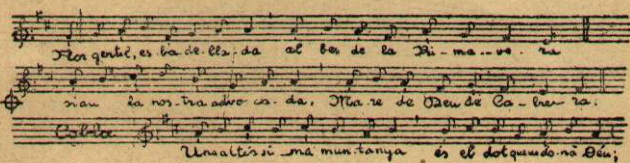 Flor gentil, es ba-de-lla-da al bes de la Pi-ma--ve-ra
siau la nos-tra advo-ca-da, Ma-re de Deu de Ca-bre-ra.
Cobla Una altíssi-ma mun-tanya és el dot que us do-na Déu;